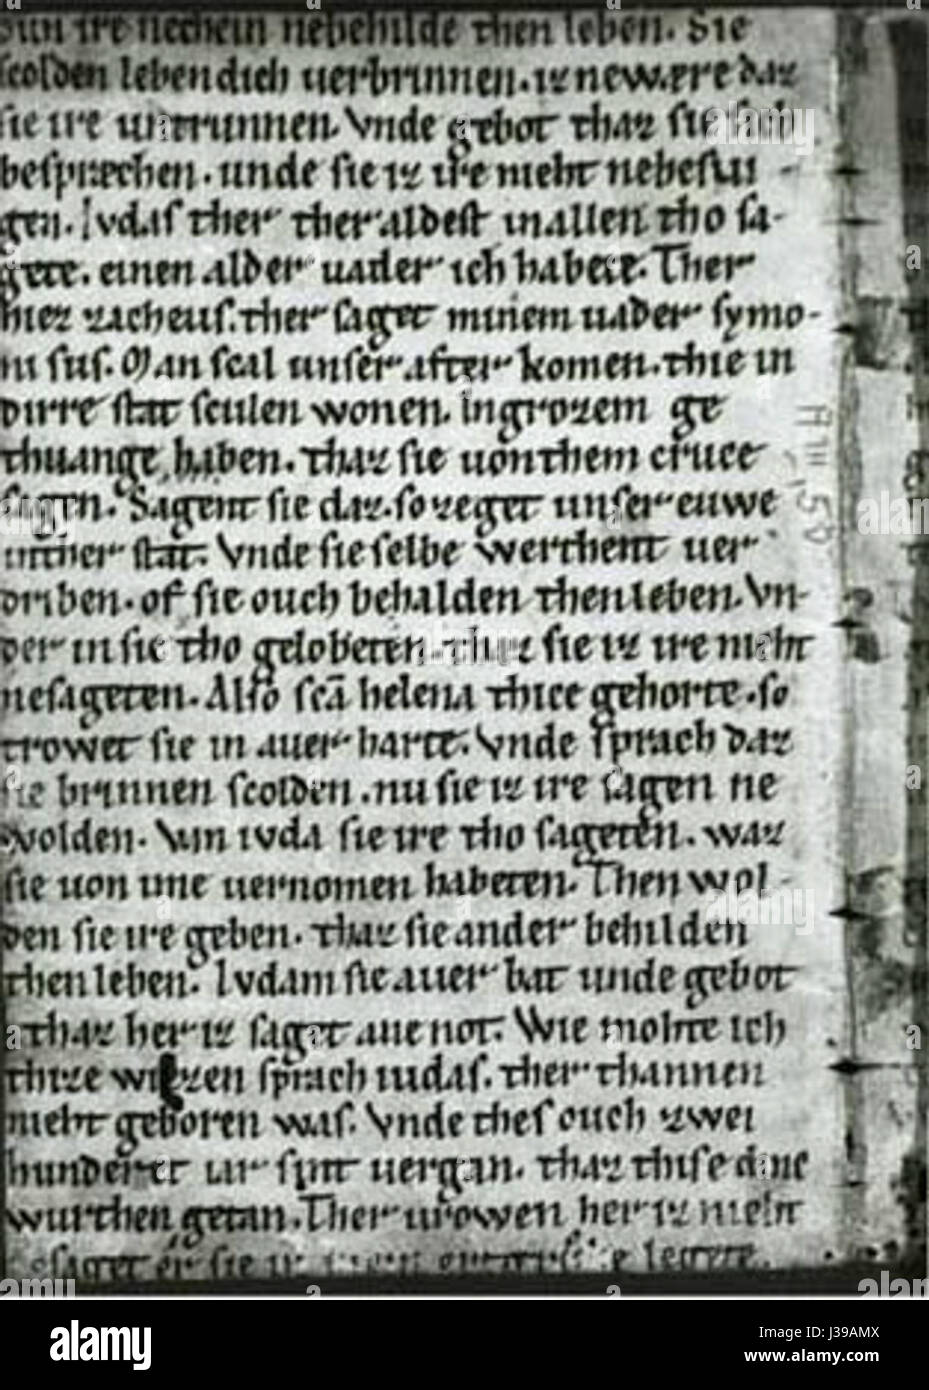 ire nechein nebehilde then leben. Sie
scolden lebendich uerbrinnen. iz newære daz
sie ire untrunnen. Vnde gebot thaz sie sich
besprechen. unde sie iz ire nieht nebesui
gen. Iudas ther ther aldest in allen tho sa-
gete. einen alder uader ich habete. Ther
hiez zacheus. ther saget minem uader symo-
ni sus. Man scal unser after komen. thie in
dirre stat sculen wonen. in grozem ge
thuange haben. thaz sie uon them cruce
sagen. Sagent sie daz. so zeget unser euwe
in ther stat. Vnde sie selbe werthent uer
driben. of sie ouch behalden then leben. Vn-
der in sie tho gelobeten. thaz sie iz ire nieht
nesageten. Also scā helena thice gehorte. so
trowet sie in auer harte. Vnde sprach daz
sie brinnen scolden. nu sie iz ire sagen ne
wolden. Vm iuda sie ire tho sageten. waz
sie uon ime uernomen habeten. Then wol-
den sie ire geben. thaz sie ander behilden
then leben. Ivdam sie auer bat unde gebot
thaz her iz saget ane not. Wie mohte ich
thize wizzen sprach iudas. ther thannen
nieht geboren was. Vnde thes ouch zwei
hunderet iar sint uergan. thaz thise dinc
wurthen getan. Ther urowen her iz nieht
saget er sie iz legete.
A III, 50
alamy
J39AMX
www.alamy.com